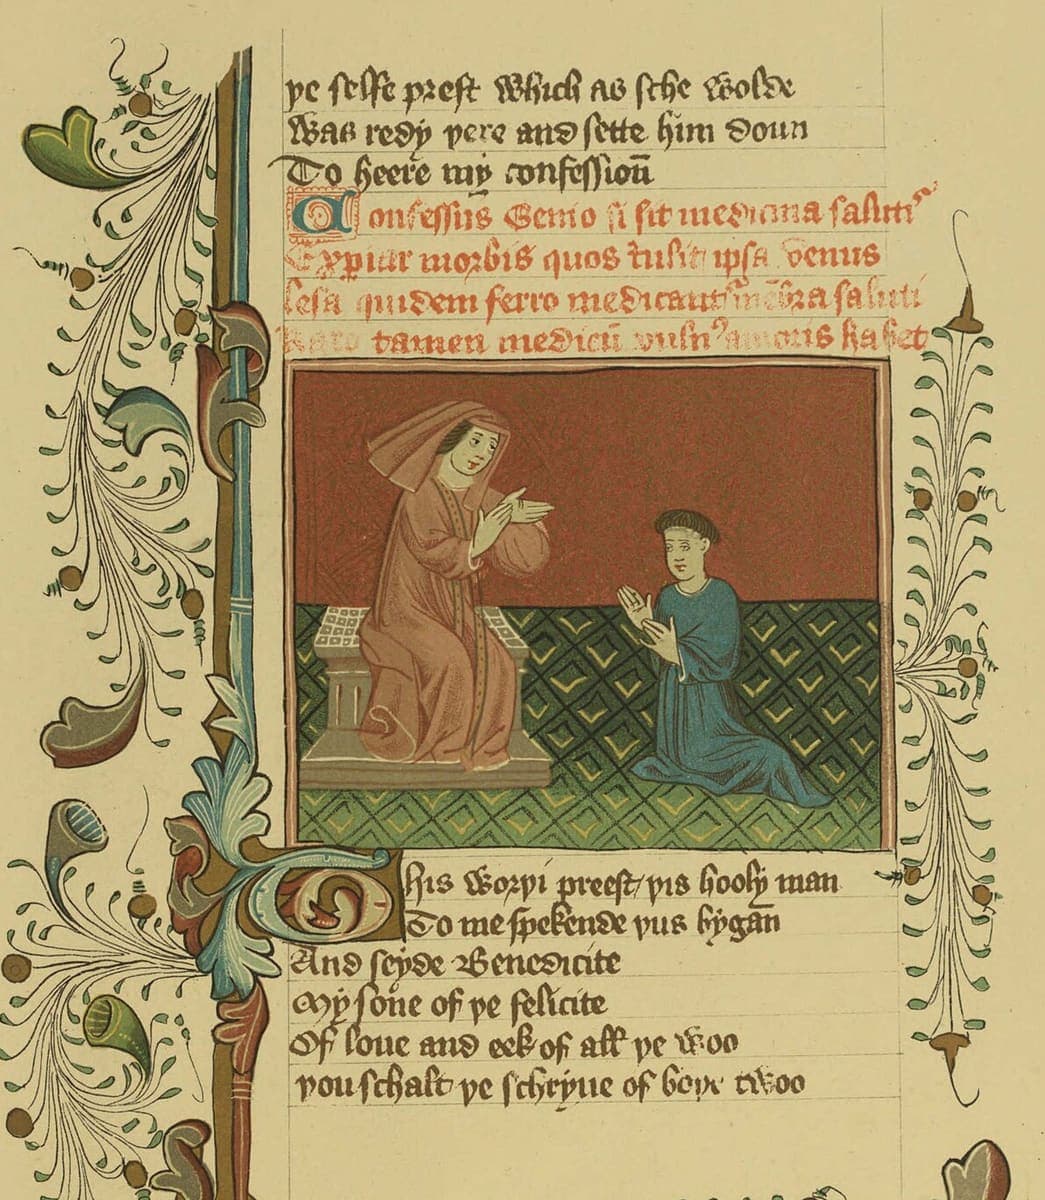 þe selfe prest which as sche wolde
Was redy þere and sette him doun
To heere my confessioū
Confessus Genio si sit medicina salutis
Experiar morbis quos tulit ipsa venus
lesa quidem ferro medicantur mēbra saluti
Raro tamen medicū vuln9 amoris habet
This worþi preest þis hooly man
To me spekende þus bygan̄
And seyde Benedicite
My sone of þe felicite
Of loue and eek of all þe woo
þou schalt þe schryue of boþe twoo